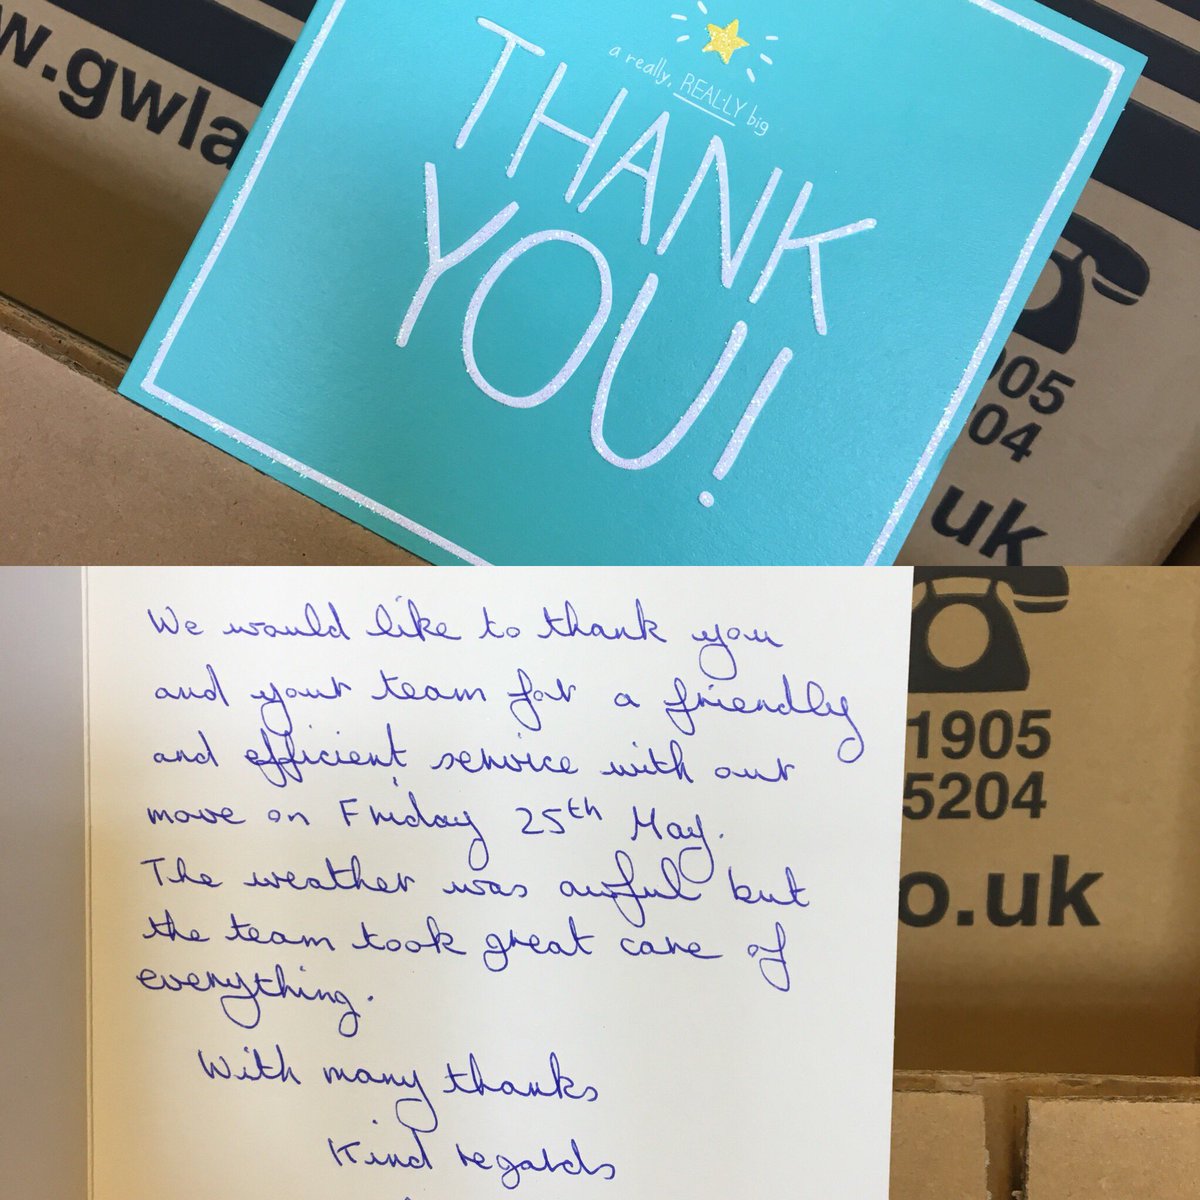 w.gwla
a really, REALLY big
THANK
YOU!
905
04
.uk
We would like to thank you
and your team for a friendly
and efficient service with our
move on Friday 25th May.
The weather was awful but
the team took great care of
everything.
With many thanks
Kind regards
1905
5204
o.uk